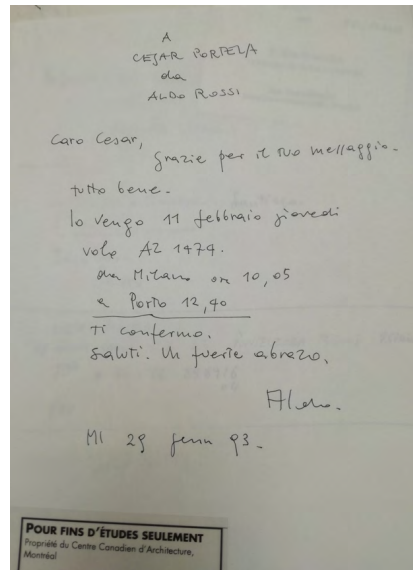 A
CESAR PORTELA
da
ALDO ROSSI
Caro Cesar,
grazie per il tuo messaggio.
tutto bene.
Io vengo 11 febbraio giovedi
volo AZ 1474.
da Milano ore 10,05
a Porto 12,40
Ti confermo.
Saluti. Un fuerte abrazo,
Aldo.
MI 29 genn 93.
POUR FINS D'ÉTUDES SEULEMENT
Propriété du Centre Canadien d'Architecture,
Montréal